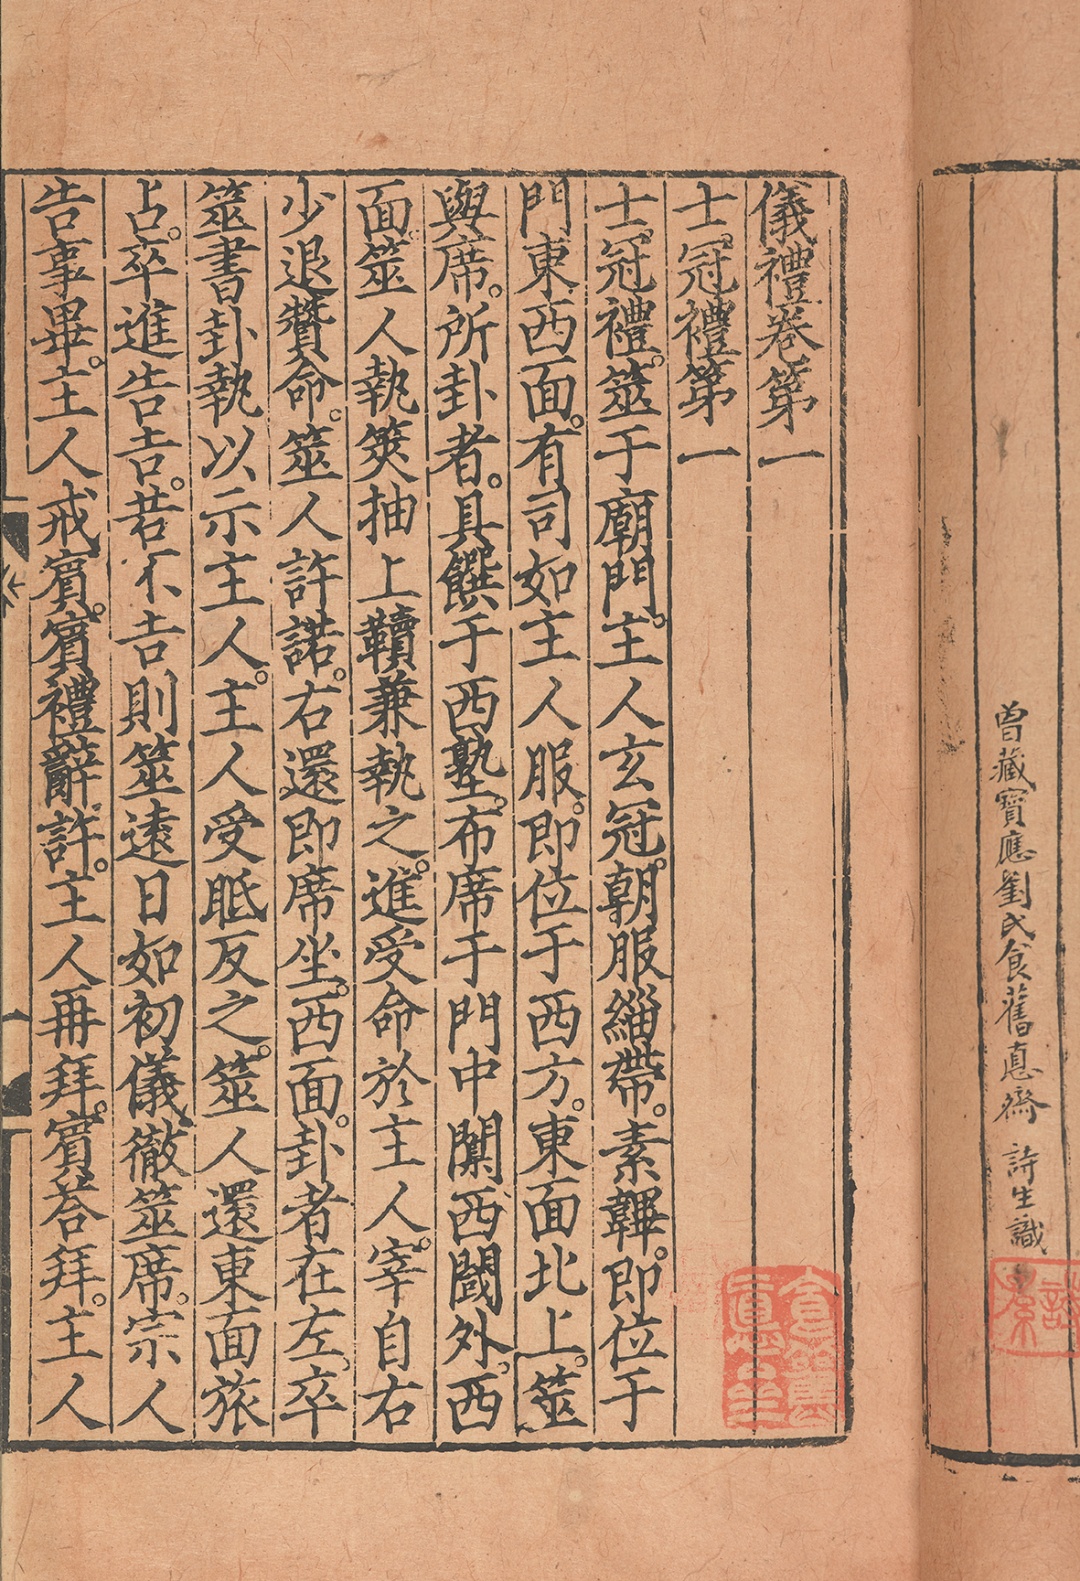 曾藏寶應劉氏食舊悳齋 詩生識
儀禮卷第一
士冠禮第一
士冠禮。筮于廟門。主人玄冠。朝服緇帶。素韠。即位于
門東西面。有司如主人服。即位于西方。東面北上。筮
與席。所卦者。具饌于西塾。布席于門中闑西閾外。西
面。筮人執筴抽上韇兼執之。進受命於主人。宰自右
少退贊命。筮人許諾。右還即席坐。西面。卦者在左。卒
筮書卦執以示主人。主人受眡反之。筮人還東面旅
占。卒進告吉。若不吉則筮遠日如初儀。徹筮席。宗人
告事畢。主人戒賓。賓禮辭許。主人再拜。賓荅拜。主人
食舊悳齋